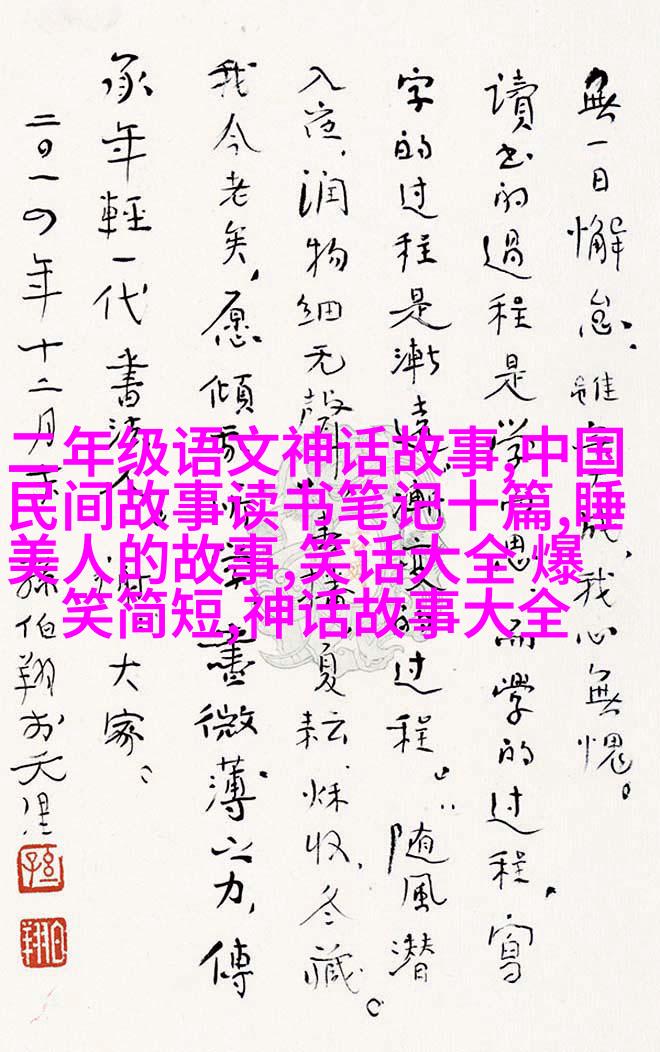 無一日懈怠,雖成,我心無愧。
讀书的過程是学思,而學的过程,寫
字的过程是漸漸变的过程。随風潜
入夜,润物细无聲夏耘,秌收,冬藏。
我今老矣,愿傾學書微薄之力,傳
承年輕一代書法大家。
二〇一四年十二月孫伯翔於天津
二年级语文神话故事,中国
民间故事读书笔记十篇,睡
美人的故事,笑话大全 爆
笑简短,神话故事大全